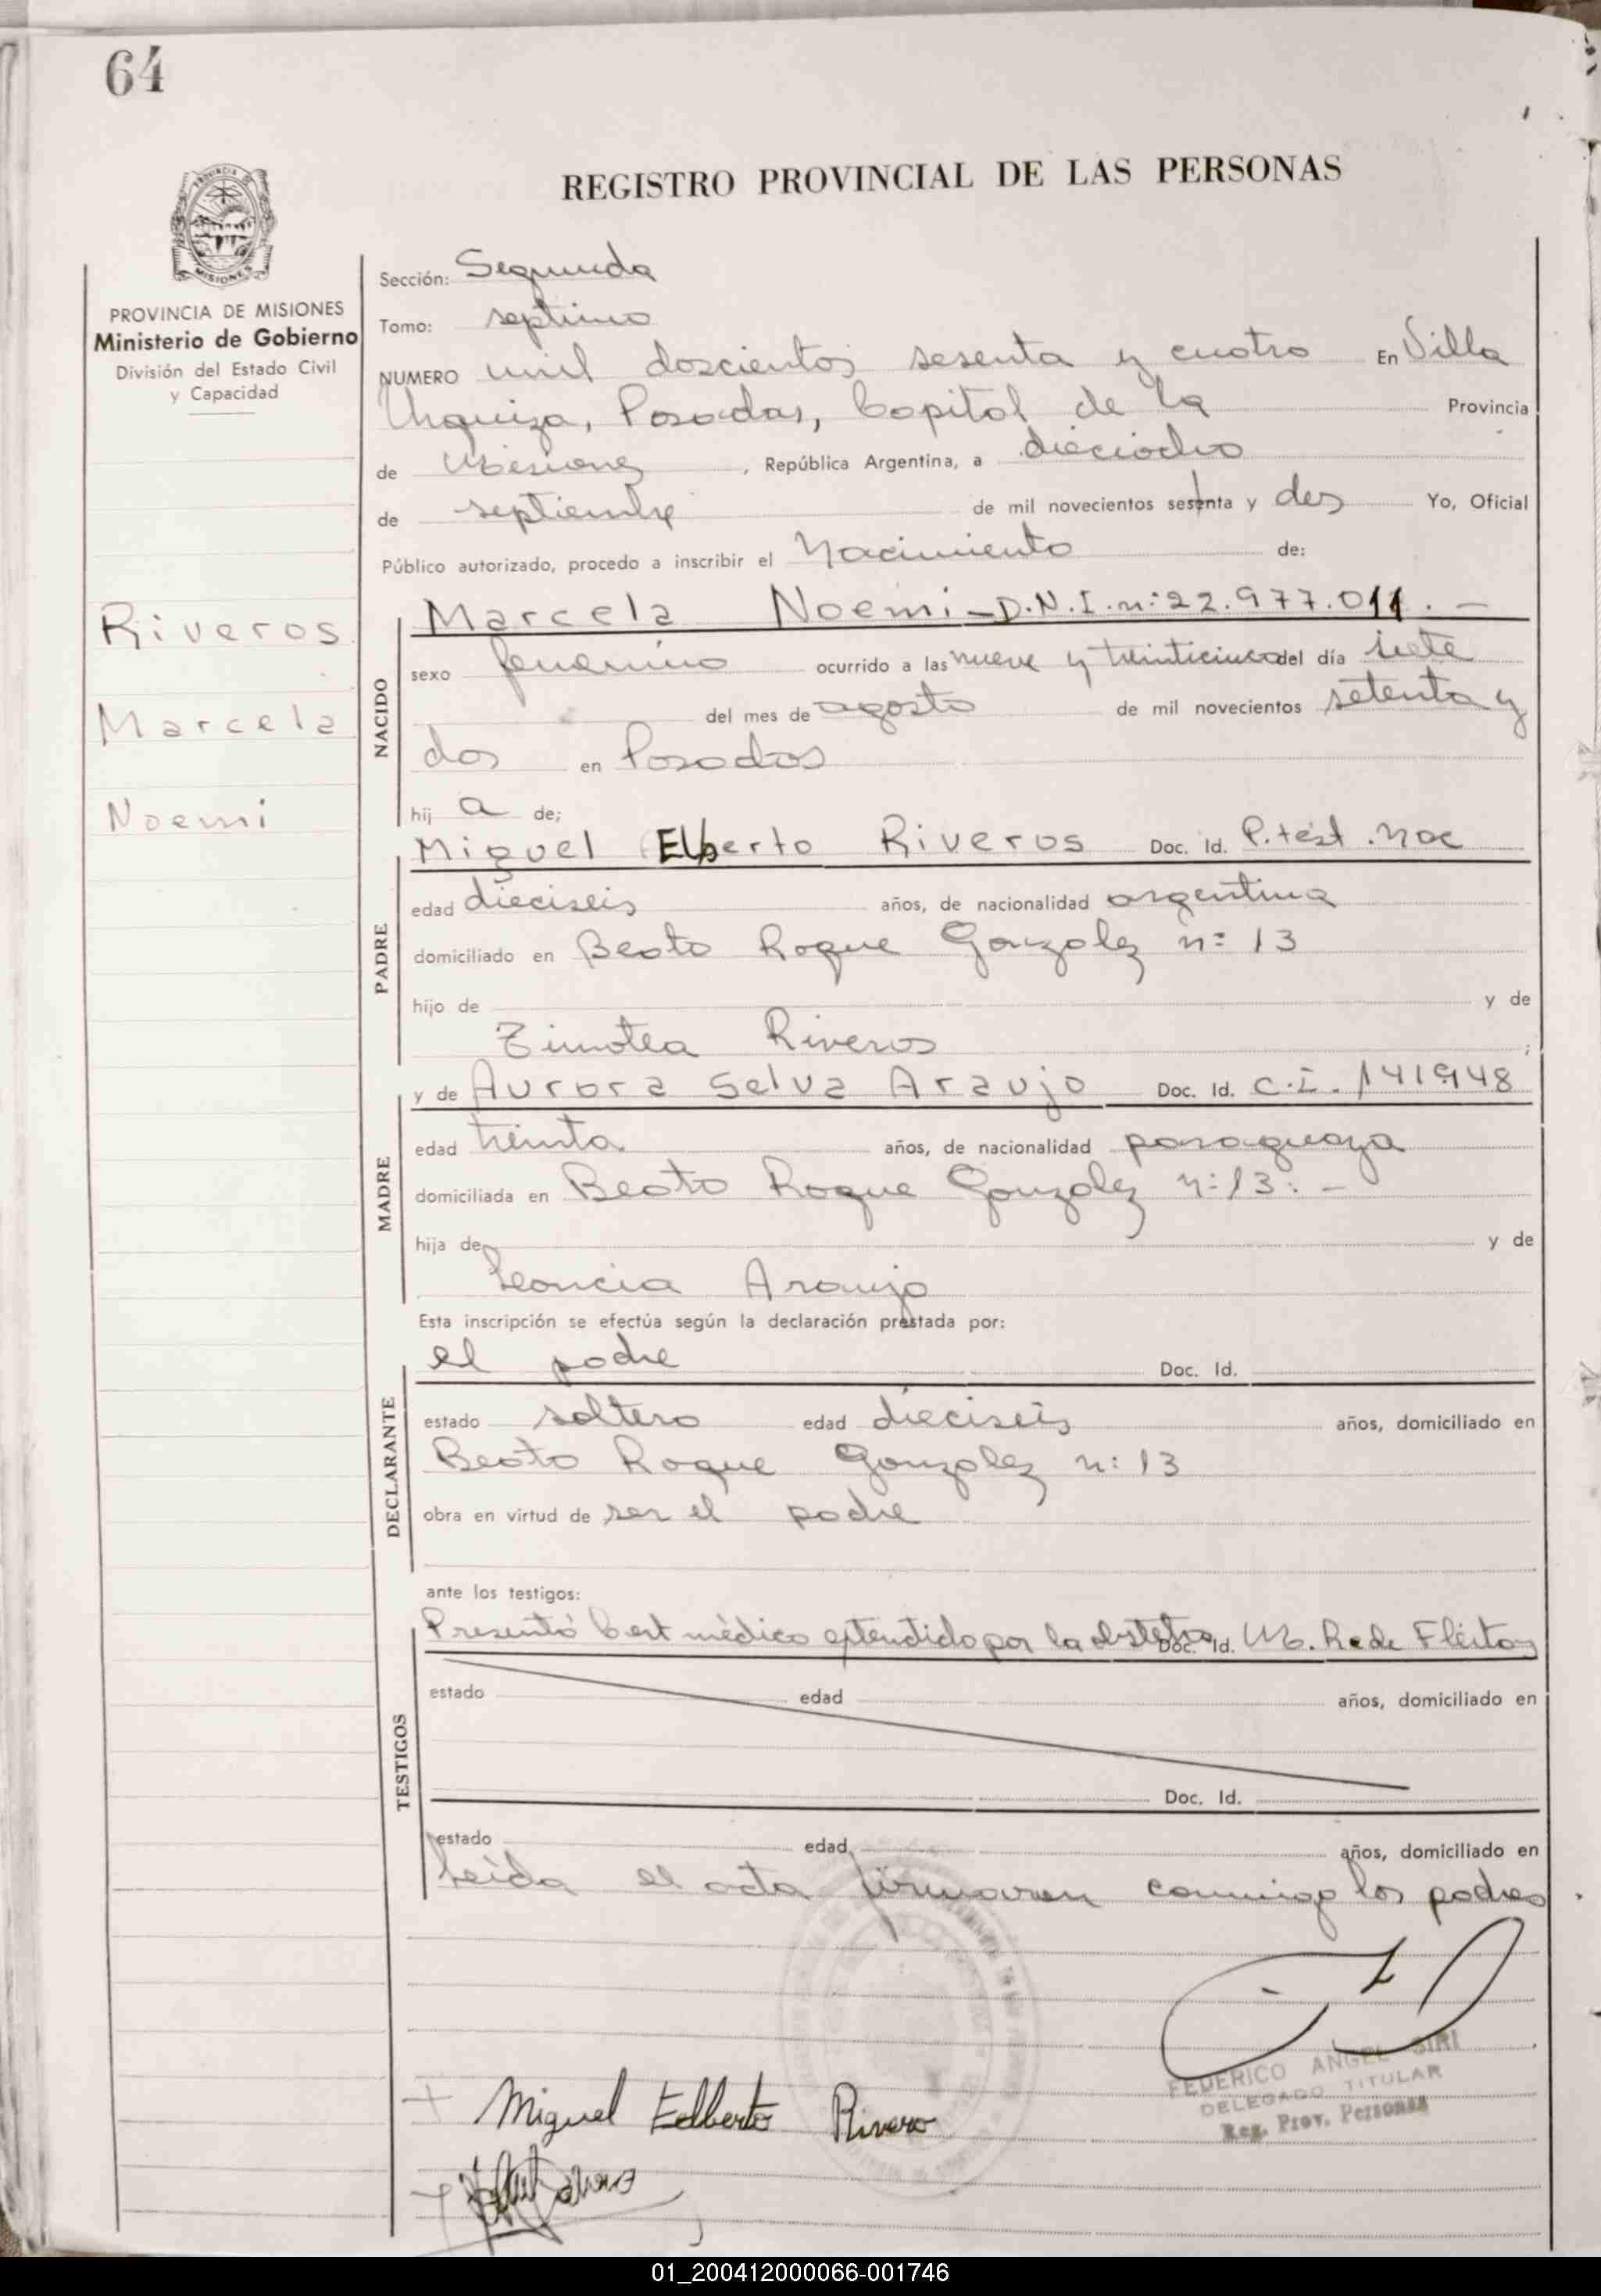 64
REGISTRO PROVINCIAL DE LAS PERSONAS
MISIONES
PROVINCIA DE MISIONES
Ministerio de Gobierno
División del Estado Civil
y Capacidad
Riveros
Marcela
Noemi
Sección: Segunda
Tomo: septimo
NUMERO mil doscientos sesenta y cuatro En Villa
Urquiza, Posadas, Capital de la Provincia
de Misiones, República Argentina, a dieciocho
de septiembre de mil novecientos setenta y dos Yo, Oficial
Público autorizado, procedo a inscribir el Nacimiento de:
NACIDO
Marcela Noemi - D.N.I. n: 22.977.011. -
sexo femenino ocurrido a las nueve y treinticinco del día siete
del mes de agosto de mil novecientos setenta y
dos en Posadas
hij a de;
PADRE
Miguel Elberto Riveros Doc. Id. P. test. Nac
edad dieciseis años, de nacionalidad argentina
domiciliado en Beato Roque Gonzalez n= 13
hijo de y de
Timotea Riveros ;
MADRE
y de Aurora Selva Araujo Doc. Id. C.I. 141948
edad treinta años, de nacionalidad paraguaya
domiciliada en Beato Roque Gonzalez n: 13. -
hija de y de
Leoncia Araujo
Esta inscripción se efectúa según la declaración prestada por:
DECLARANTE
el padre Doc. Id.
estado soltero edad dieciseis años, domiciliado en
Beato Roque Gonzalez n: 13
obra en virtud de ser el padre
ante los testigos:
TESTIGOS
Presentó Cert médico extendido por la obstetra Doc. Id. M. R. de Fleitas
estado edad años, domiciliado en
Doc. Id.
estado edad años, domiciliado en
Leida el acta firmaron conmigo los padres.
FEDERICO ANGEL SIRI
DELEGADO TITULAR
Reg. Prov. Personas
Miguel Edberto Rivero
01_200412000066-001746